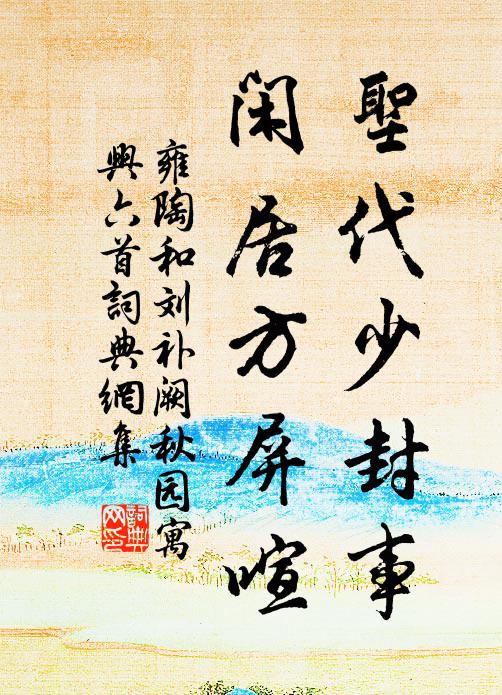 聖代少封事
閑居方屏喧
雍陶和刘补阙秋园寓
興六首詞典網集